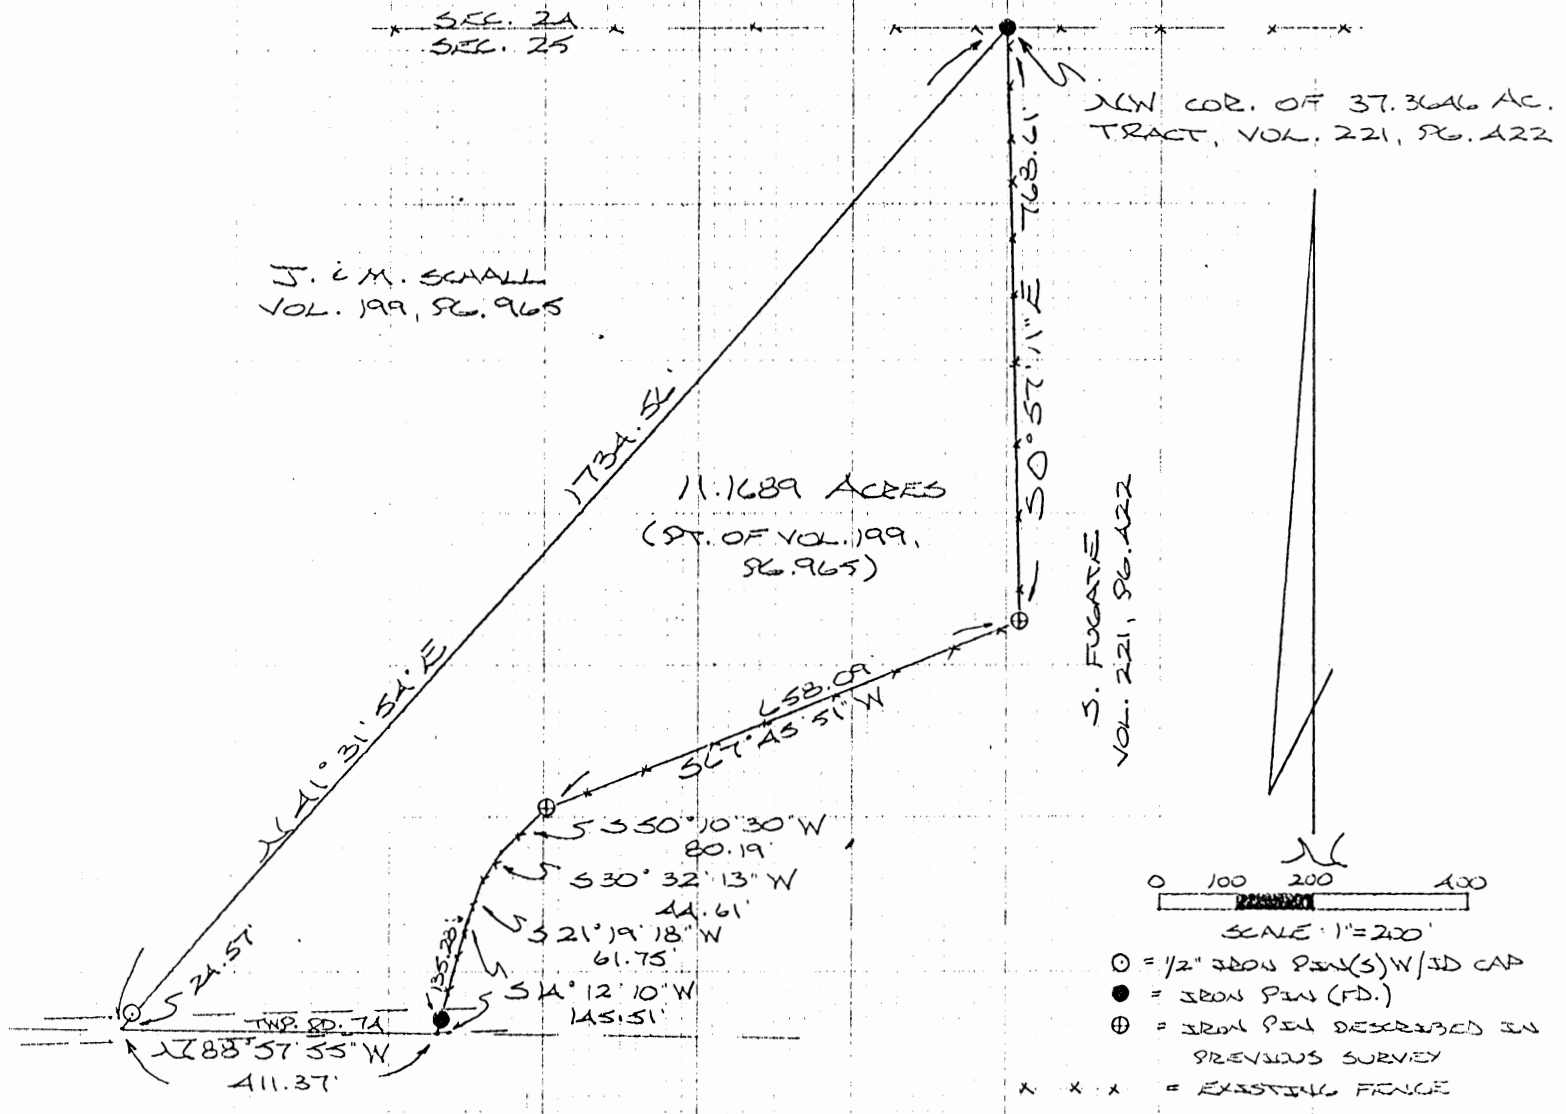 SEC. 24
SEC. 25
NW COR. OF 37.3646 AC.
TRACT, VOL. 221, PG. 422
768.61'
S0°57'11"E
J. & M. SCHALL
VOL. 199, PG. 965
1734.56'
N 41° 31' 54" E
24.57'
11.1689 ACRES
(PT. OF VOL. 199,
PG. 965)
S. FUGATE
VOL. 221, PG. 422
658.09'
S67°45'51"W
S 50°10'30"W
80.19'
S 30° 32' 13" W
44.61'
S 21° 19' 18" W
61.75'
S 14° 12' 10" W
145.51'
135.28'
TWP. RD. 74
N 88°57'55"W
411.37'
N
0 100 200 400
SCALE: 1"=200'
= 1/2" IRON PIN(S) W/ID CAP
= IRON PIN (FD.)
= IRON PIN DESCRIBED IN
PREVIOUS SURVEY
x x x = EXISTING FENCE